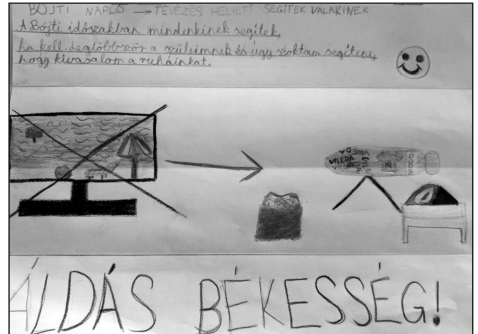 BÖJTI NAPLÓ → TÉVÉZÉS HELYETT SEGÍTEK VALAKINEK
A Böjti időszakban mindenkinek segítek,
ha kell. Legtöbbször a szüleimnek és úgy szoktam segíteni,
hogy kivasalom a ruháinkat.
VILEDA
ÁLDÁS BÉKESSÉG!